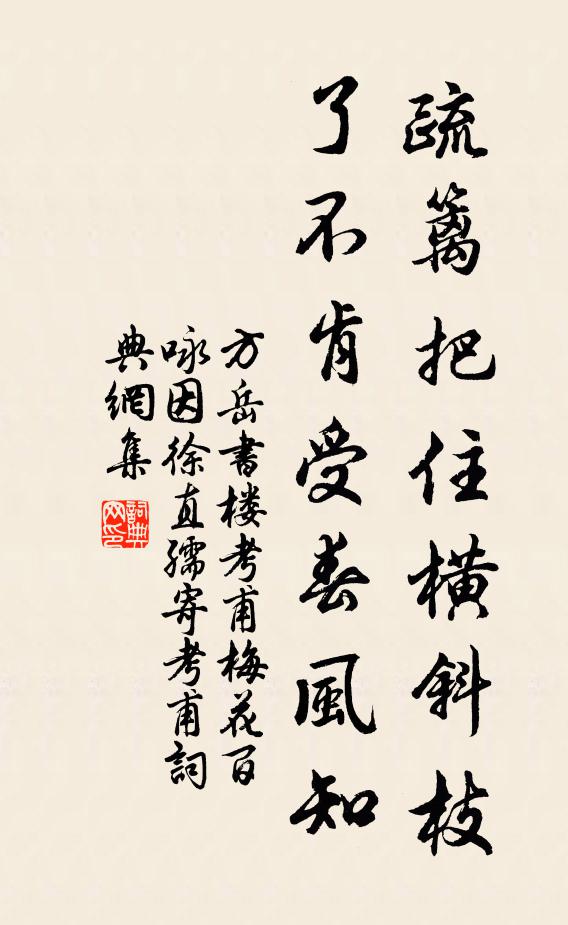 疏篱把住橫斜枝
了不肯受春風知
方岳書楼考甫梅花百
咏因徐直孺寄考甫詞
典網集
詞典
网印